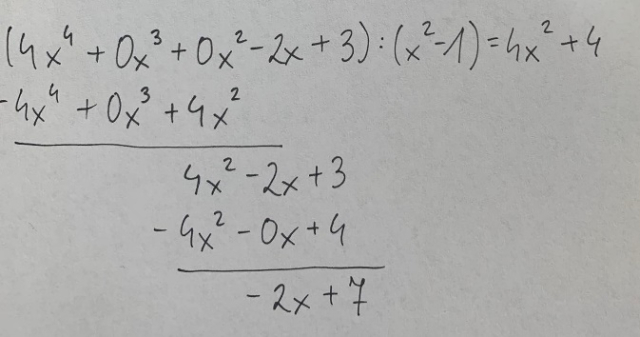 (4x⁴ + 0x³ + 0x² - 2x + 3) : (x² - 1) = 4x² + 4
-4x⁴ + 0x³ + 4x²
4x² - 2x + 3
- 4x² - 0x + 4
- 2x + 7